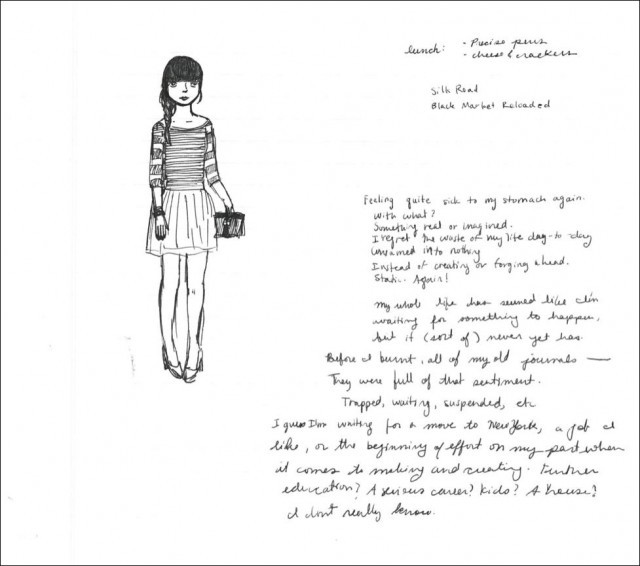 lunch: - Precise pens
- cheese & crackers
Silk Road
Black Market Reloaded
Feeling quite sick to my stomach again.
With what?
Something real or imagined.
I regret the waste of my life day-to day
in to nothing
Instead of creating or forging ahead.
Static. Again!
My whole life has seemed like I'm
waiting for something to happen,
but it (sort of) never yet has.
Before I burnt, all of my old journals —
They were full of that sentiment.
Trapped, waiting, suspended, etc
I guess I'm waiting for a move to New York, a job I
like, or the beginning of effort on my part when
it comes to making and creating. Further
education? A serious career? Kids? A house?
I don't really know.